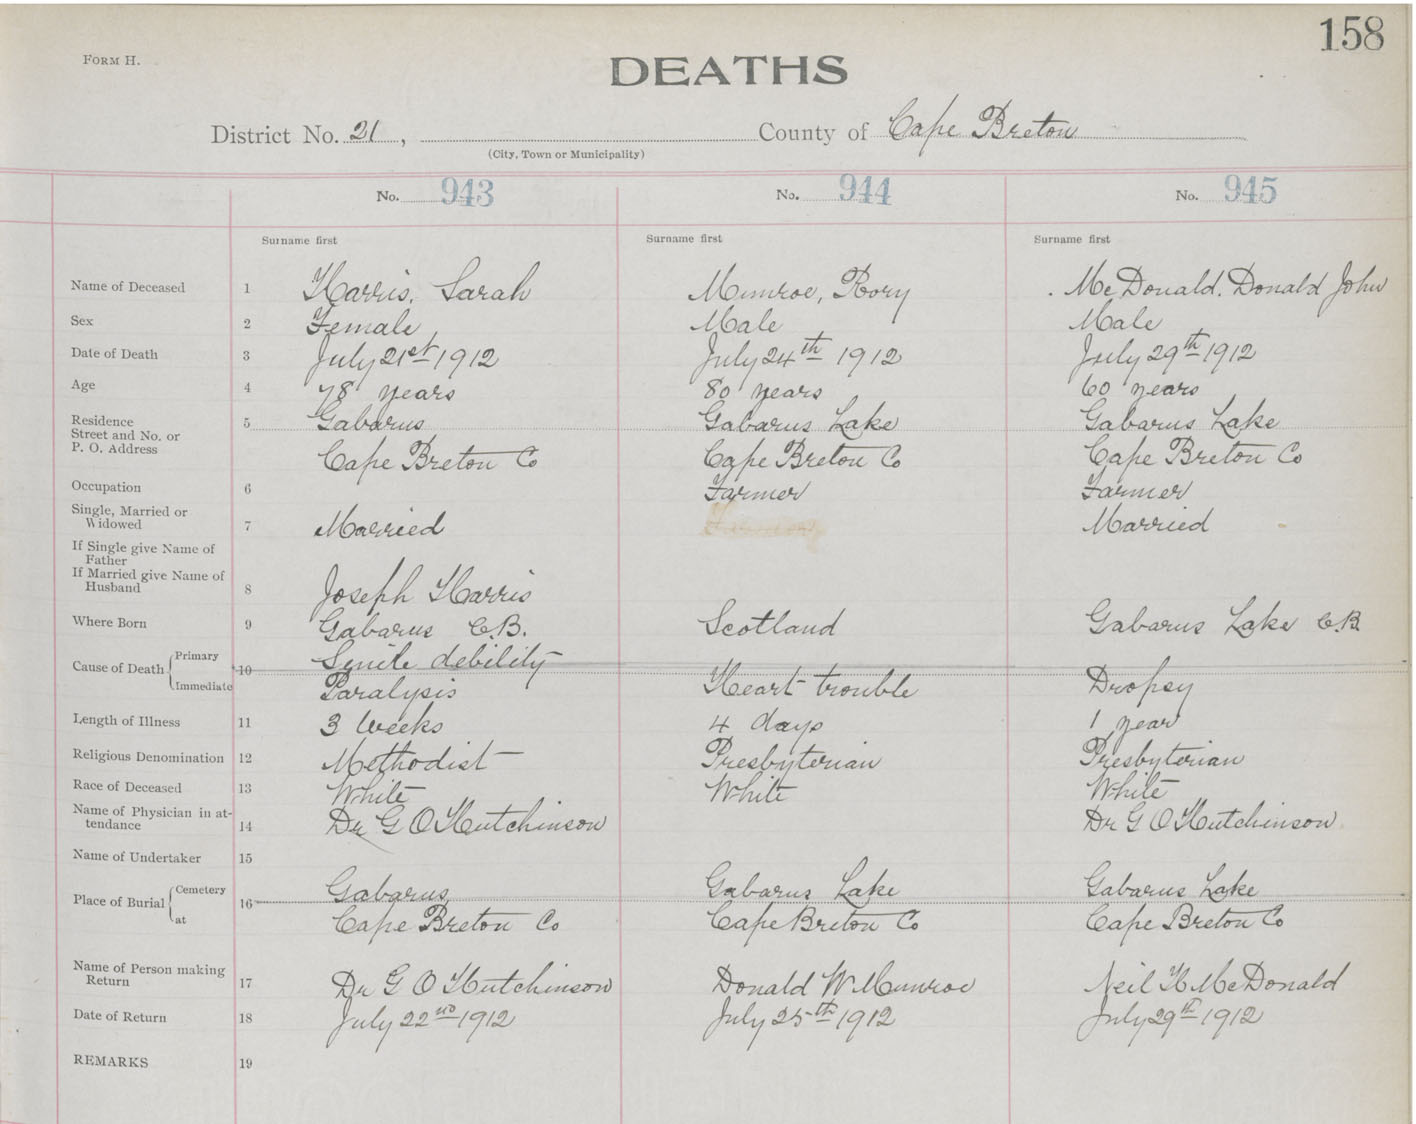 158
FORM H.
DEATHS
District No. 21, County of Cape Breton
(City, Town or Municipality)
No. 943 No. 944 No. 945
Surname first Surname first Surname first
Name of Deceased 1 Harris, Sarah Munroe, Rory McDonald, Donald John
Sex 2 Female Male Male
Date of Death 3 July 21st 1912 July 24th 1912 July 29th 1912
Age 4 78 years 80 years 60 years
Residence 5 Gabarus Gabarus Lake Gabarus Lake
Street and No. or
P. O. Address Cape Breton Co Cape Breton Co Cape Breton Co
Occupation 6 Farmer Farmer
Single, Married or
Widowed 7 Married Married
If Single give Name of
Father
If Married give Name of
Husband 8 Joseph Harris
Where Born 9 Gabarus C.B. Scotland Gabarus Lake C.B.
Cause of Death Primary 10 Senile debility
Immediate Paralysis Heart trouble Dropsy
Length of Illness 11 3 weeks 4 days 1 year
Religious Denomination 12 Methodist Presbyterian Presbyterian
Race of Deceased 13 White White White
Name of Physician in at-
tendance 14 Dr G O Hutchinson Dr G O Hutchinson
Name of Undertaker 15
Place of Burial Cemetery 16 Gabarus Gabarus Lake Gabarus Lake
at Cape Breton Co Cape Breton Co Cape Breton Co
Name of Person making
Return 17 Dr G O Hutchinson Donald W Munroe Neil H McDonald
Date of Return 18 July 22nd 1912 July 25th 1912 July 29th 1912
REMARKS 19